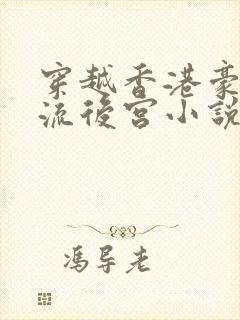 穿越香港豪
流後宮小說
馮导老